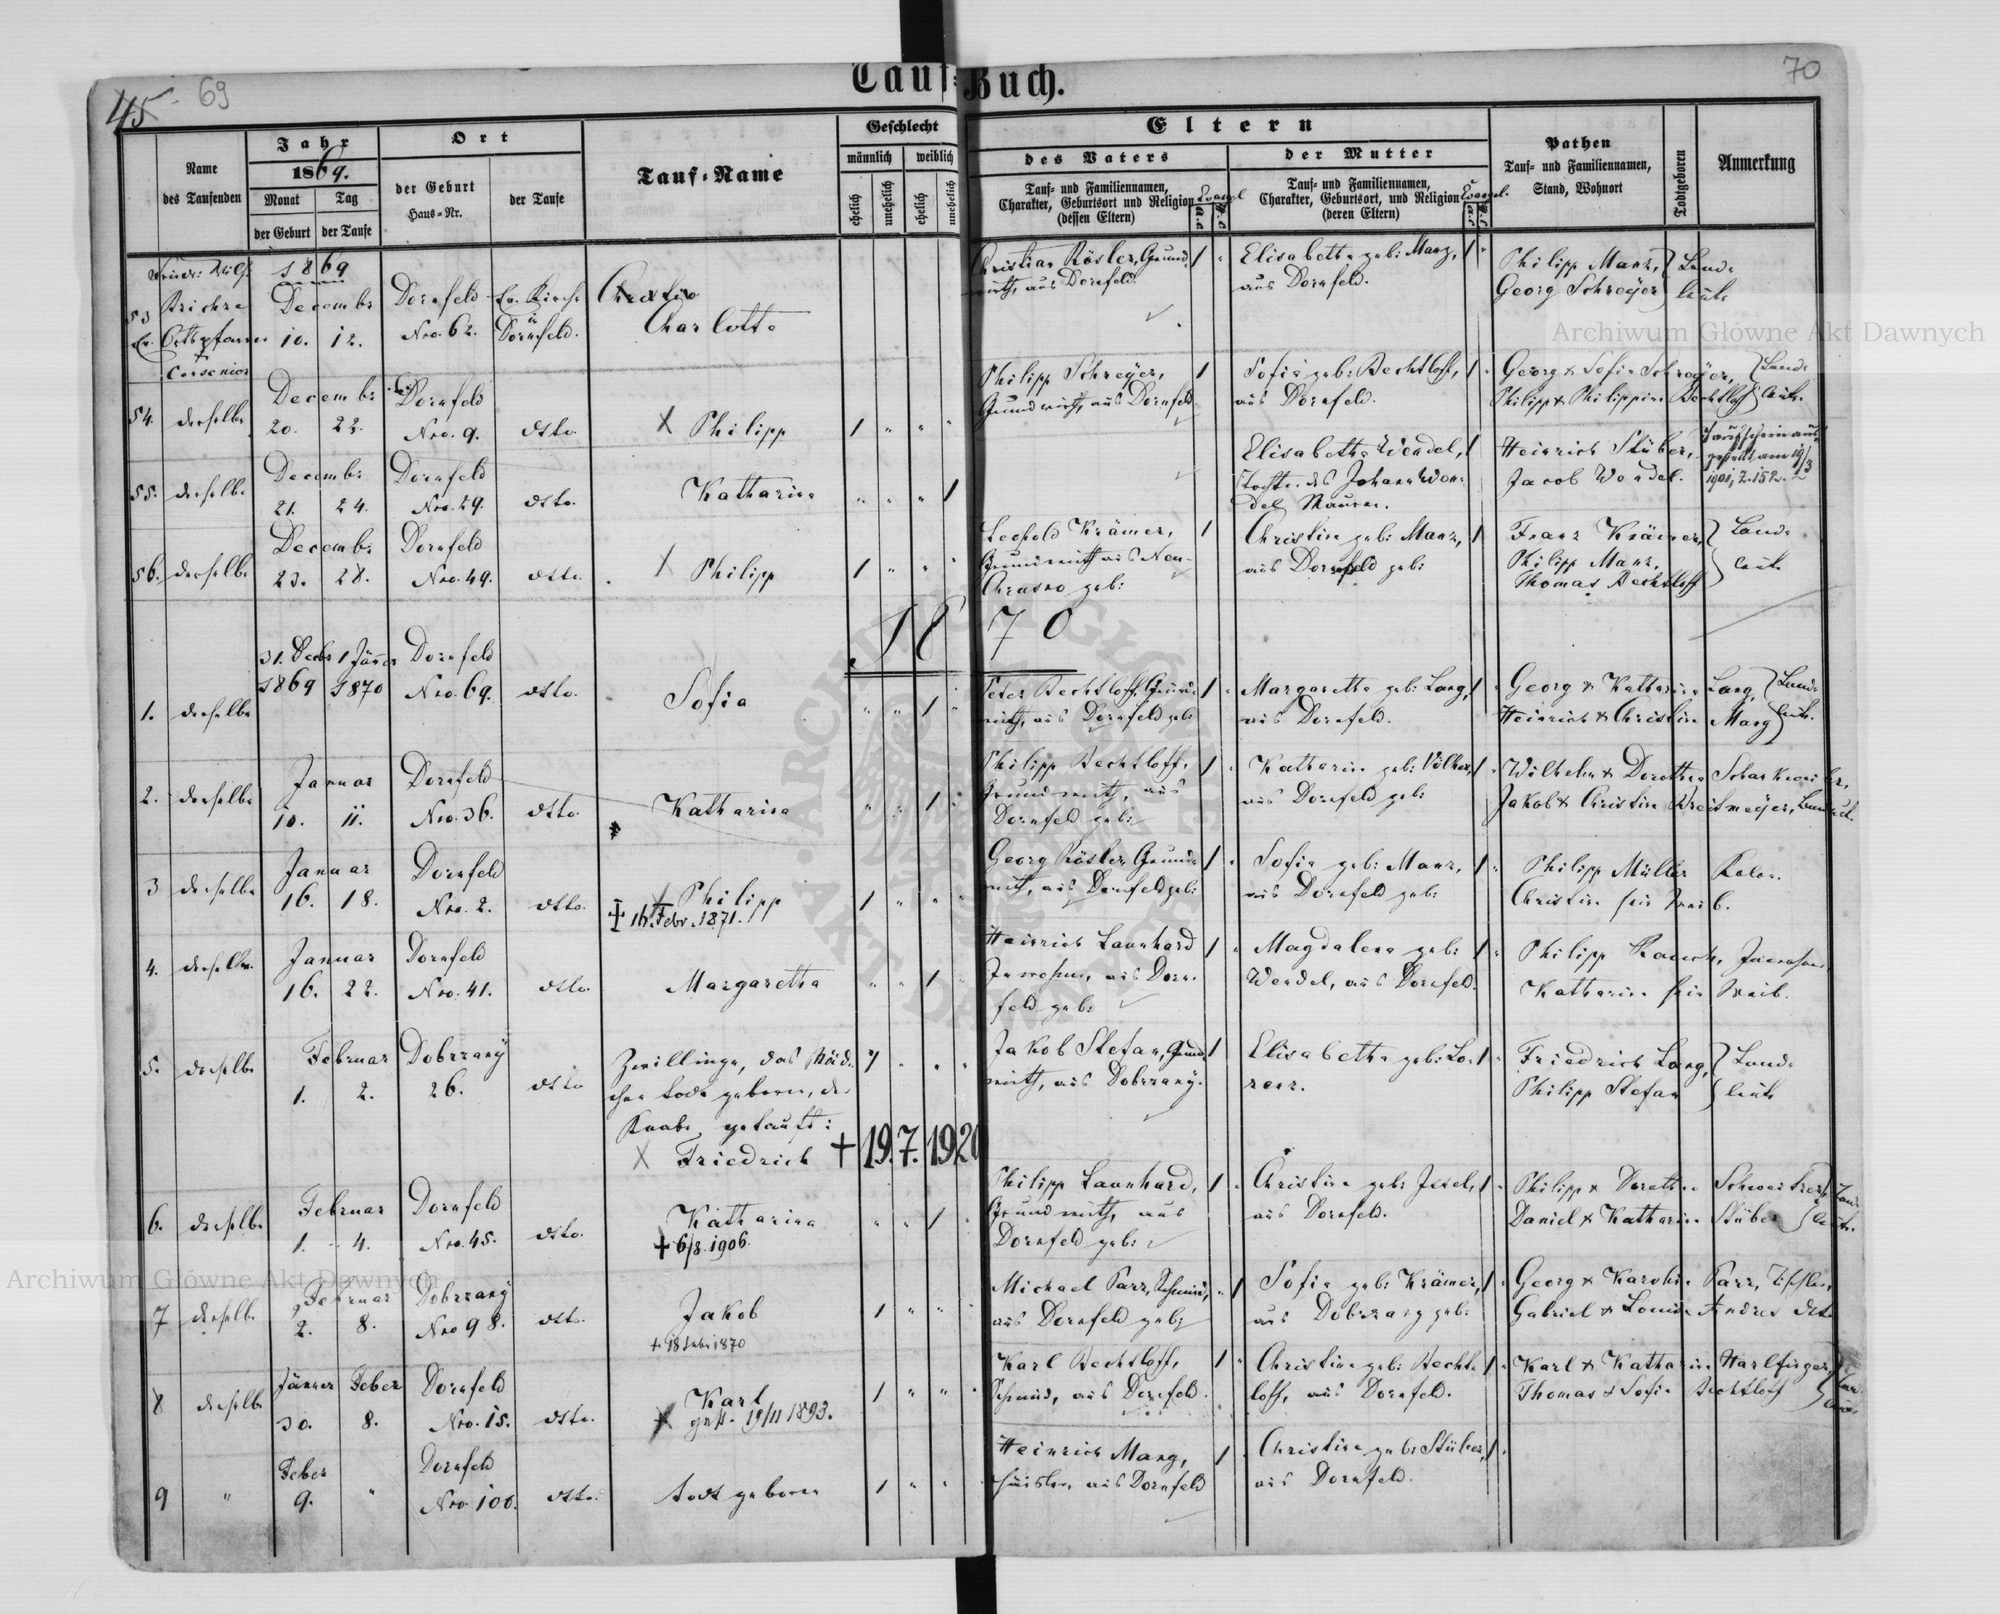 Tauf-Buch.
45
69
70
Name
des Taufenden
Jahr
1869.
Monat
Tag
der Geburt
der Taufe
Ort
der Geburt
Haus-Nr.
der Taufe
Tauf-Name
Geschlecht
männlich
weiblich
ehelich
unehelich
ehelich
unehelich
Eltern
des Vaters
Tauf- und Familiennamen,
Charakter, Geburtsort und Religion
(dessen Eltern)
Evangel
der Mutter
Tauf- und Familiennamen,
Charakter, Geburtsort, und Religion
(deren Eltern)
Evangel.
Pathen
Tauf- und Familiennamen,
Stand, Wohnort
Todtgeboren
Anmerkung
1869
53
Decembr
10. 12.
Dornfeld
Nro. 62.
Ev. Kirche
in
Dornfeld.
Charlotte
Christian Rösler, Grund-
wirth, aus Dornfeld.
Elisabetha geb: Manz,
aus Dornfeld.
Philipp Manz,
Georg Schreyer
Land-
leute
54. derselbe
Decembr
20. 22.
Dornfeld
Nro. 9.
dtto.
Philipp
Philipp Schreyer,
Grundwirth, aus Dornfeld
Sofia geb: Bechtloff,
aus Dornfeld.
Georg & Sofia Schreyer,
Philipp & Philippine Bechtloff
Land-
leute.
55. derselbe
Decembr
21. 24.
Dornfeld
Nro. 29.
dtto.
Katharina
Elisabetha Wendel,
Tochter des Johann Wen-
del Maurer.
Heinrich Stüber,
Jacob Wendel.
Taufschein aus-
gestellt am 19/3
1901, Z. 152.
56. derselbe
Decembr
23. 28.
Dornfeld
Nro. 49.
dtto.
Philipp
Leopold Krämer,
Grundwirth aus Neu-
Chrusno geb:
Christine geb: Manz,
aus Dornfeld geb:
Franz Krämer,
Philipp Manz,
Thomas Bechtloff
Land-
leute
1870
1. derselbe
31. Decbr 1 Jänner
1869 1870
Dornfeld
Nro. 69.
dtto.
Sofia
Peter Bechtloff, Grund-
wirth, aus Dornfeld geb:
Margaretha geb: Lang,
aus Dornfeld.
Georg & Katharina Lang,
Heinrich & Christine Manz
Land-
leute.
2. derselbe
Januar
10. 11.
Dornfeld
Nro. 36.
dtto.
Katharina
Philipp Bechtloff,
Grundwirth, aus
Dornfeld geb:
Katharine geb: Völker,
aus Dornfeld geb:
3 derselbe
Januar
16. 18.
Dornfeld
Nro. 2.
dtto.
Philipp
† 16. Febr. 1871.
Georg Rösler, Grund-
wirth, aus Dornfeld geb:
Sofia geb: Manz,
aus Dornfeld geb:
Philipp Müller
Christine sein Weib.
4. derselbe.
Januar
16. 22.
Dornfeld
Nro. 41.
dtto.
Margaretha
Heinrich Launhard
Inwohner, aus Dorn-
feld geb:
Magdalena geb:
Wendel, aus Dornfeld.
Philipp Rauch, Inwohner
Katharine sein Weib.
5. derselbe
Februar
1. 2.
Dobrzany
26.
dtto
Zwillinge, das Mäd-
chen todt geboren, der
Knabe getauft:
Friedrich † 19.7.1920
Jakob Stefan, Grund
wirth, aus Dobrzany.
Elisabetha geb: Lo-
renz.
Friedrich Lang,
Philipp Stefan
Land-
leute
6. derselbe
Februar
1. 4.
Dornfeld
Nro. 45.
dtto.
Katharina
† 6/8. 1906.
Philipp Launhard,
Grundwirth, aus
Dornfeld geb:
Christine geb: Issel,
aus Dornfeld.
Philipp & Dorothea Schweitzer,
Daniel & Katharine Stüber
Land-
leute.
7 derselbe
Februar
2. 8.
Dobrzany
Nro 98.
dtto.
Jakob
† 18 Febr 1870
Michael Parr, Schmied,
aus Dornfeld geb:
Sofia geb: Krämer,
aus Dobrzany geb:
Georg & Karoline Parr, Tischler,
Gabriel & Louise Andres dtto
8 derselbe
Jänner Feber
30. 8.
Dornfeld
Nro. 15.
dtto.
Karl
gest. 19/11 1893.
Karl Bechtloff,
Schmied, aus Dornfeld.
Christine geb: Becht-
loff, aus Dornfeld.
Karl & Katharine Harlfinger,
Thomas & Sofia Bechtloff
9 "
Feber
9. "
Dornfeld
Nro. 100.
dtto.
todt geboren
Heinrich Manz,
Häusler, aus Dornfeld
Christine geb: Stüber,
aus Dornfeld.
Archiwum Główne Akt Dawnych
Archiwum Główne Akt Dawnych
ARCHIWUM GŁÓWNE
AKT DAWNYCH